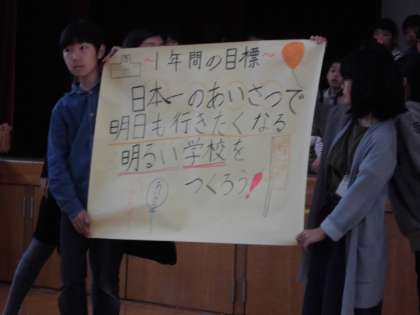 ～1年間の目標～
日本一のあいさつで
明日も行きたくなる
明るい学校を
つくろう!